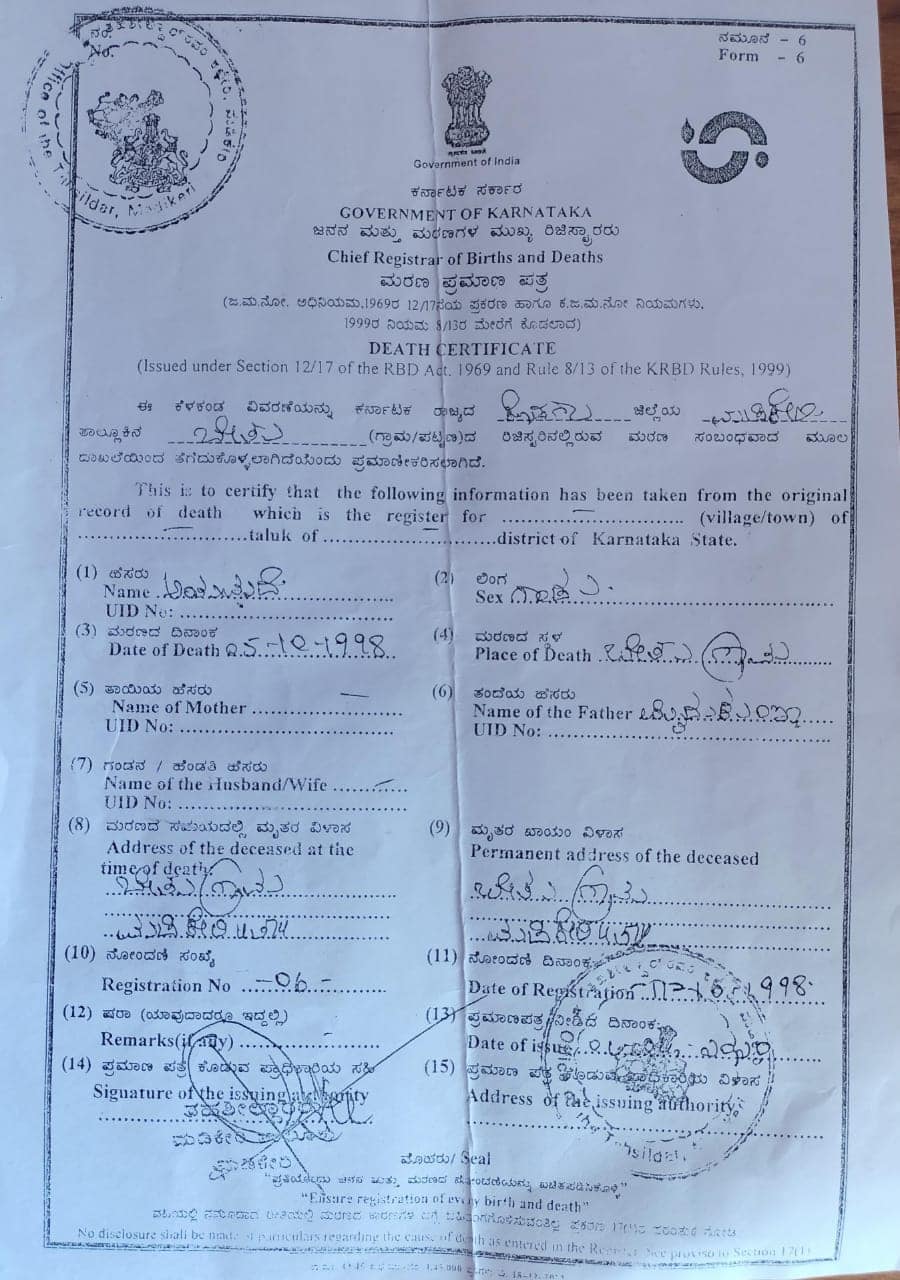 ನಮೂನೆ - 6
Form - 6
No.
Office of the Tahsildar, Madikeri
Government of India
ಕರ್ನಾಟಕ ಸರ್ಕಾರ
GOVERNMENT OF KARNATAKA
ಜನನ ಮತ್ತು ಮರಣಗಳ ಮುಖ್ಯ ರಿಜಿಸ್ಟ್ರಾರರು
Chief Registrar of Births and Deaths
ಮರಣ ಪ್ರಮಾಣ ಪತ್ರ
(ಜ.ಮ.ನೋ. ಅಧಿನಿಯಮ,1969ರ 12/17ನೆಯ ಪ್ರಕರಣ ಹಾಗೂ ಕ.ಜ.ಮ.ನೋ ನಿಯಮಗಳು,
1999ರ ನಿಯಮ 8/13ರ ಮೇರೆಗೆ ಕೊಡಲಾದ)
DEATH CERTIFICATE
(Issued under Section 12/17 of the RBD Act. 1969 and Rule 8/13 of the KRBD Rules, 1999)
ಈ ಕೆಳಕಂಡ ವಿವರಣೆಯನ್ನು ಕರ್ನಾಟಕ ರಾಜ್ಯದ ಕೊಡಗು ಜಿಲ್ಲೆಯ ಮಡಿಕೇರಿ
ತಾಲ್ಲೂಕಿನ (ಗ್ರಾಮ/ಪಟ್ಟಣ)ದ ರಿಜಿಸ್ಟರಿನಲ್ಲಿರುವ ಮರಣ ಸಂಬಂಧವಾದ ಮೂಲ
ದಾಖಲೆಯಿಂದ ತೆಗೆದುಕೊಳ್ಳಲಾಗಿದೆಯೆಂದು ಪ್ರಮಾಣೀಕರಿಸಲಾಗಿದೆ.
This is to certify that the following information has been taken from the original
record of death which is the register for .......... (village/town) of
..........taluk of ..........district of Karnataka State.
(1) ಹೆಸರು
Name
UID No:
(2) ಲಿಂಗ
Sex ಗಂಡು
(3) ಮರಣದ ದಿನಾಂಕ
Date of Death 05-10-1998
(4) ಮರಣದ ಸ್ಥಳ
Place of Death ಗ್ರಾಮ
(5) ತಾಯಿಯ ಹೆಸರು
Name of Mother
UID No:
(6) ತಂದೆಯ ಹೆಸರು
Name of the Father
UID No:
(7) ಗಂಡನ / ಹೆಂಡತಿ ಹೆಸರು
Name of the Husband/Wife
UID No:
(8) ಮರಣದ ಸಮಯದಲ್ಲಿ ಮೃತರ ವಿಳಾಸ
Address of the deceased at the
time of death:
ಗ್ರಾಮ
ಮಡಿಕೇರಿ
(9) ಮೃತರ ಖಾಯಂ ವಿಳಾಸ
Permanent address of the deceased
ಗ್ರಾಮ
ಮಡಿಕೇರಿ
(10) ನೋಂದಣಿ ಸಂಖ್ಯೆ
Registration No -06-
(11) ನೋಂದಣಿ ದಿನಾಂಕ
Date of Registration 1998
(12) ಷರಾ (ಯಾವುದಾದರೂ ಇದ್ದಲ್ಲಿ)
Remarks(if any)
(13) ಪ್ರಮಾಣಪತ್ರ ನೀಡಿದ ದಿನಾಂಕ
Date of issue
(14) ಪ್ರಮಾಣ ಪತ್ರ ಕೊಡುವ ಪ್ರಾಧಿಕಾರಿಯ ಸಹಿ
Signature of the issuing authority
(15) ಪ್ರಮಾಣ ಪತ್ರ ಕೊಡುವ ಪ್ರಾಧಿಕಾರಿಯ ವಿಳಾಸ
Address of the issuing authority:
ತಹಶೀಲ್ದಾರ್
ಮಡಿಕೇರಿ ತಾಲೂಕು
ಮಡಿಕೇರಿ
ಮೊಹರು/ Seal
"ಪ್ರತಿಯೊಂದು ಜನನ ಮತ್ತು ಮರಣದ ನೋಂದಣಿಯನ್ನು ಖಚಿತಪಡಿಸಿಕೊಳ್ಳಿ"
"Ensure registration of every birth and death"
No disclosure shall be made of particulars regarding the cause of death as entered in the Register. See proviso to Section 17(1)